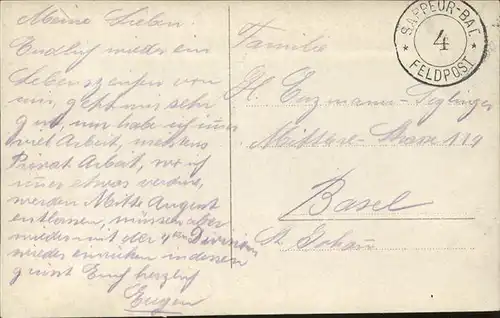 Meine Lieben.
Endlich wieder ein
Lebenszeichen von
mir, geht mir sehr
gut, nur habe ich immer
viel Arbeit, meistens
Privat Arbeit, wo ich
immer etwas verdine,
werden Mitte August
entlassen, müssen aber
wieder mit der 4ten Division
wieder einrücken indessen
grüsst Euch herzlich
Eugen
Familie
H. Enzmann-
Mittlere-Strasse 119
Basel
St. Johann
* SAPPEUR-BAT. *
4
FELDPOST